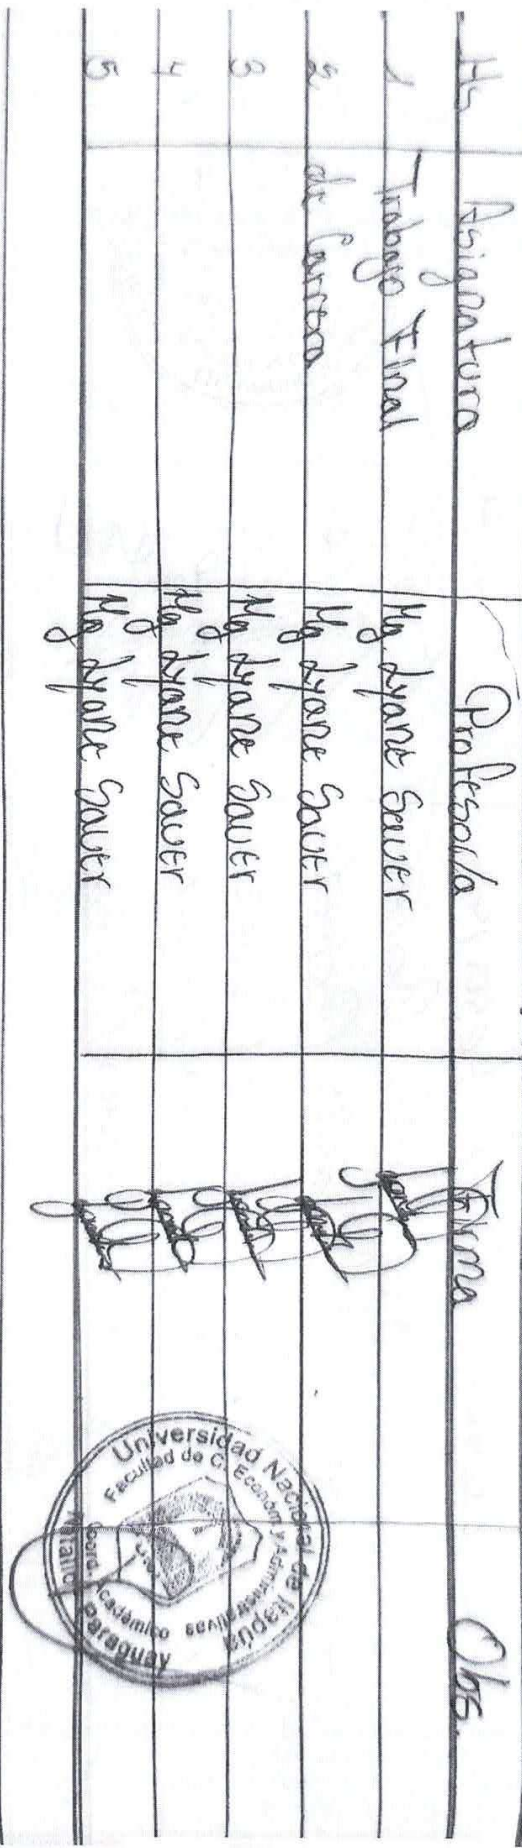 Hs Asignatura Profesor/a Firma Obs.
1 Trabajo Final Mg. Lyane Sauer
2 de Carrera Mg Lyane Sauer
3 Mg Lyane Sauer
4 Mg Lyane Sauer
5 Mg Lyane Sauer
Universidad Nacional de Itapúa
Facultad de C. Económ. y Administrativas
Coord. Académico
Natalio
Paraguay